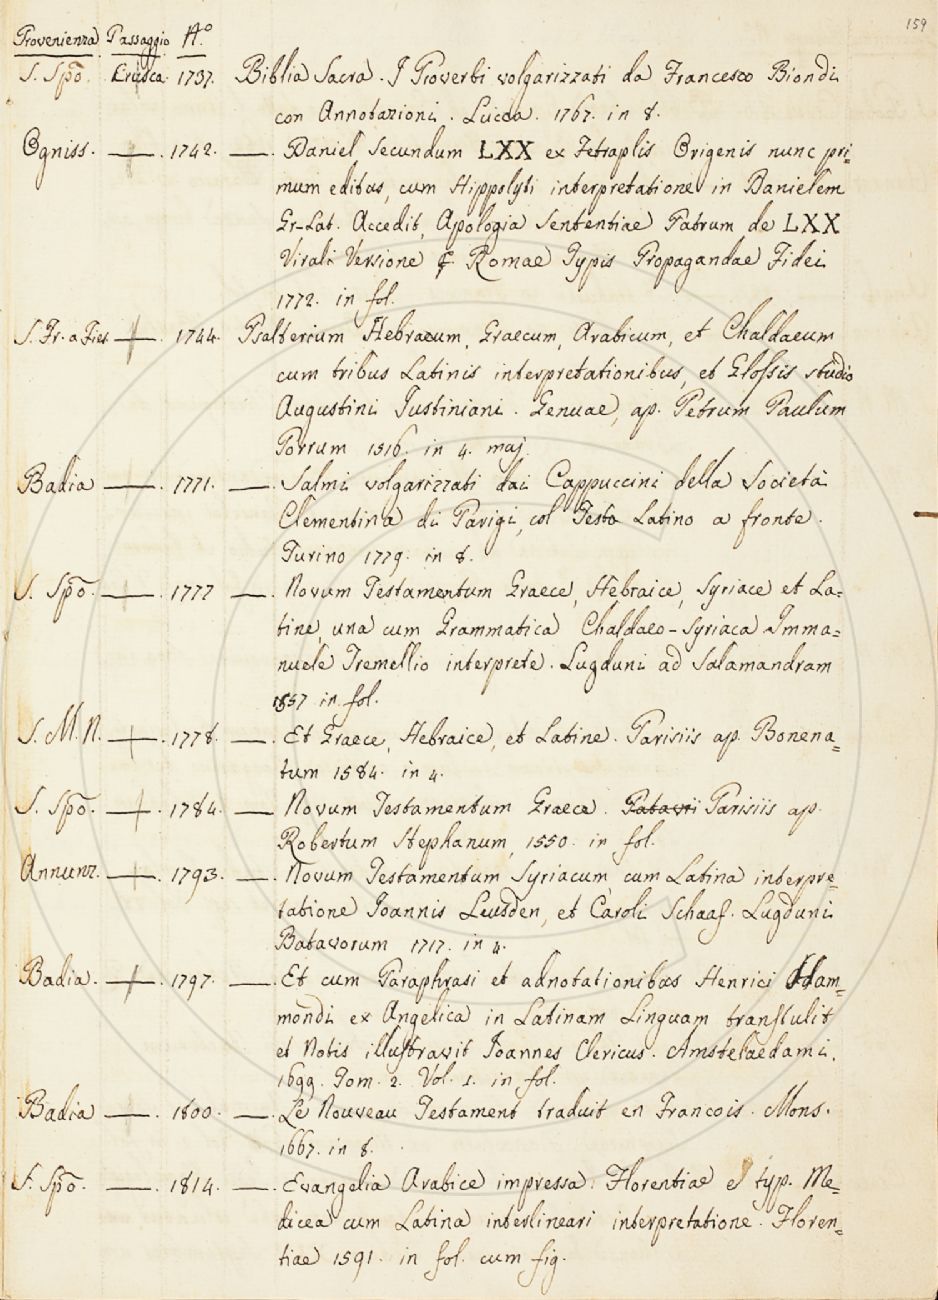 159
Provenienza Passaggio N.º
S. Spō. Crusca. 1737. Biblia Sacra. I Proverbi volgarizzati da Francesco Biondi
con Annotazioni. Lucca. 1767. in 8.
Ogniss. —. 1742. —. Daniel secundum LXX ex Tetraplis Origenis nunc pri=
mum editus, cum Hippolyti interpretatione in Danielem
Gr-Lat. Accedit, Apologia sententiae Patrum de LXX
Virali Versione &. Romae Typis Propagandae Fidei
1772. in fol.
S. Fr. a Fies. —. 1744. Psalterium Hebraeum, Graecum, Arabicum, et Chaldaeum
cum tribus Latinis interpretationibus, et Glossis studio
Augustini Justiniani. Genuae, ap. Petrum Paulum
Porrum 1516. in 4. maj.
Badia —. 1771. —. Salmi volgarizzati dai Cappuccini della Società
Clementina di Parigi, col Testo Latino a fronte.
Turino 1779. in 8.
S. Spō. —. 1777 —. Novum Testamentum Graece, Hebraice, Syriace et La=
tine, una cum Grammatica Chaldaeo-Syriaca Imma=
nuele Tremellio interprete. Lugduni ad Salamandram
1857 in fol.
S. M. N. —. 1778. —. Et Graece, Hebraice, et Latine. Parisiis ap. Bonena=
tum 1584. in 4.
S. Spō. —. 1784. — Novum Testamentum Graece. Patavii Parisiis ap.
Robertum Stephanum, 1550. in fol.
Annunz. —. 1793. —. Novum Testamentum Syriacum, cum Latina interpre=
tatione Joannis Leusden, et Caroli Schaaf. Lugduni
Batavorum 1717. in 4.
Badia. —. 1797. —. Et cum Paraphrasi et adnotationibus Henrici Ham=
mondi ex Angelica in Latinam Linguam transtulit
et Notis illustravit Joannes Clericus. Amstelaedami.
1699. Tom. 2. Vol. 1. in fol.
Badia —. 1800. —. Le Nouveau Testament traduit en Francois. Mons.
1667. in 8.
S. Spō. —. 1814. —. Evangelia Arabice impressa. Florentiae e typ. Me=
dicea cum Latina interlineari interpretatione. Floren=
tiae 1591. in fol. cum fig.